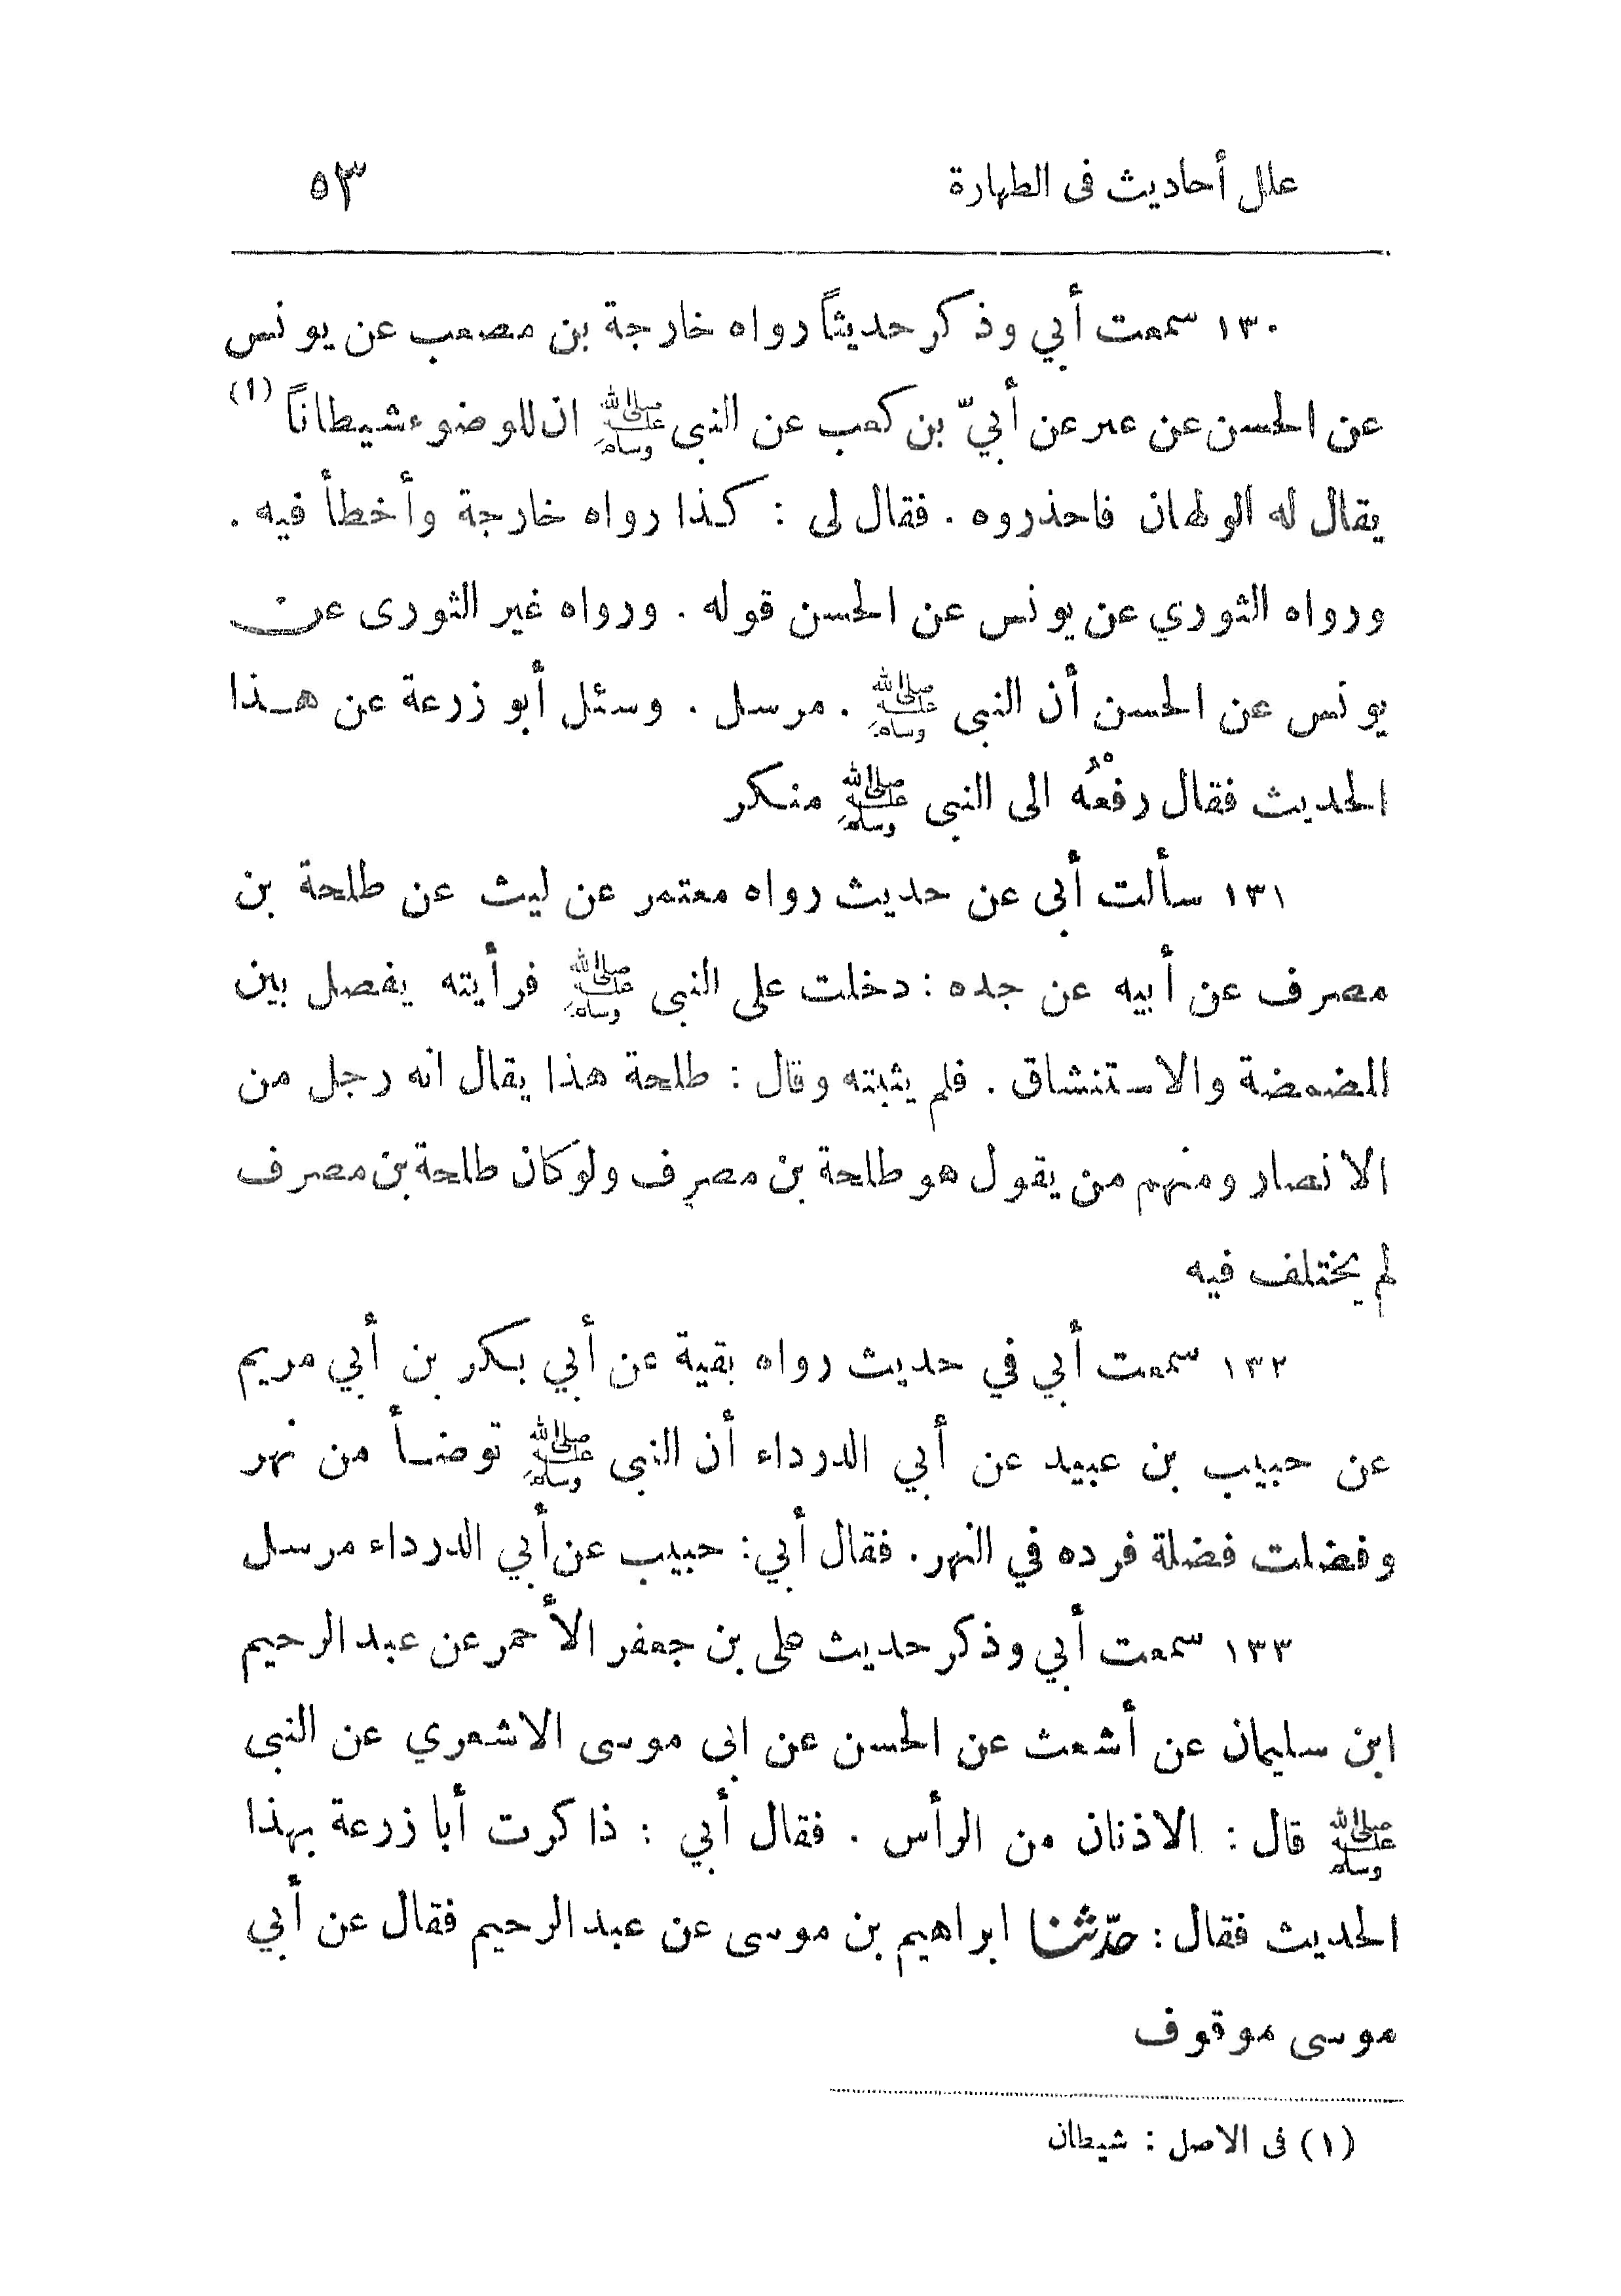 علل أحاديث فى الطهارة ٥٣
١٣٠ سمعت أبي وذكر حديثاً رواه خارجة بن مصعب عن يونس
عن الحسن عن عمر عن أبيّ بن كعب عن النبى ﷺ ان للوضوء شيطاناً (١)
يقال له الولهان فاحذروه . فقال لى : كذا رواه خارجة وأخطأ فيه .
ورواه الثوري عن يونس عن الحسن قوله . ورواه غير الثورى عن
يونس عن الحسن أن النبى ﷺ . مرسل . وسئل أبو زرعة عن هـذا
الحديث فقال رفْعُه الى النبى ﷺ منكر
١٣١ سألت أبى عن حديث رواه معتمر عن ليث عن طلحة بن
مصرف عن أبيه عن جده : دخلت على النبى ﷺ فرأيته يفصل بين
المضمضة والاستنشاق . فلم يثبته وقال : طلحة هذا يقال انه رجل من
الانصار ومنهم من يقول هو طلحة بن مصرف ولو كان طلحة بن مصرف
لم يختلف فيه
١٣٢ سمعت أبي في حديث رواه بقية عن أبي بكر بن أبي مريم
عن حبيب بن عبيد عن أبي الدرداء أن النبى ﷺ توضأ من نهر
وفضلت فضلة فرده في النهر. فقال أبي: حبيب عن أبي الدرداء مرسل
١٣٣ سمعت أبي وذكر حديث على بن جعفر الأحمر عن عبد الرحيم
ابن سليمان عن أشعث عن الحسن عن ابى موسى الاشعري عن النبى
ﷺ قال : الاذنان من الرأس . فقال أبي : ذاكرت أبا زرعة بهذا
الحديث فقال : حدّثنا ابراهيم بن موسى عن عبد الرحيم فقال عن أبي
موسى موقوف
(١) فى الاصل : شيطان